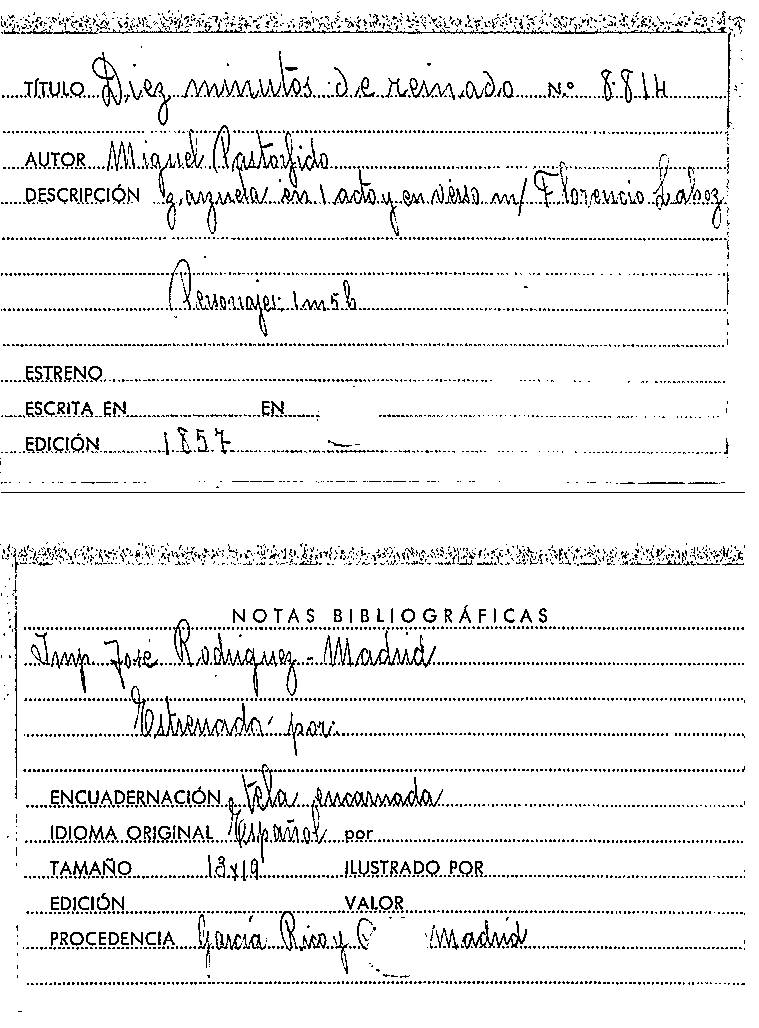 TÍTULO Diez minutos de reinado N.º 8.814
AUTOR Miguel Pastorfido
DESCRIPCIÓN Zarzuela en 1 acto y en verso m/ Florencio Lahoz
Personajes 1 m 5 h
ESTRENO
ESCRITA EN EN
EDICIÓN 1857
NOTAS BIBLIOGRÁFICAS
Imp. José Rodriguez - Madrid
Estrenada por:
ENCUADERNACIÓN tela encarnada
IDIOMA ORIGINAL Español por
TAMAÑO 13x19 ILUSTRADO POR
EDICIÓN VALOR
PROCEDENCIA García Rico y C Madrid